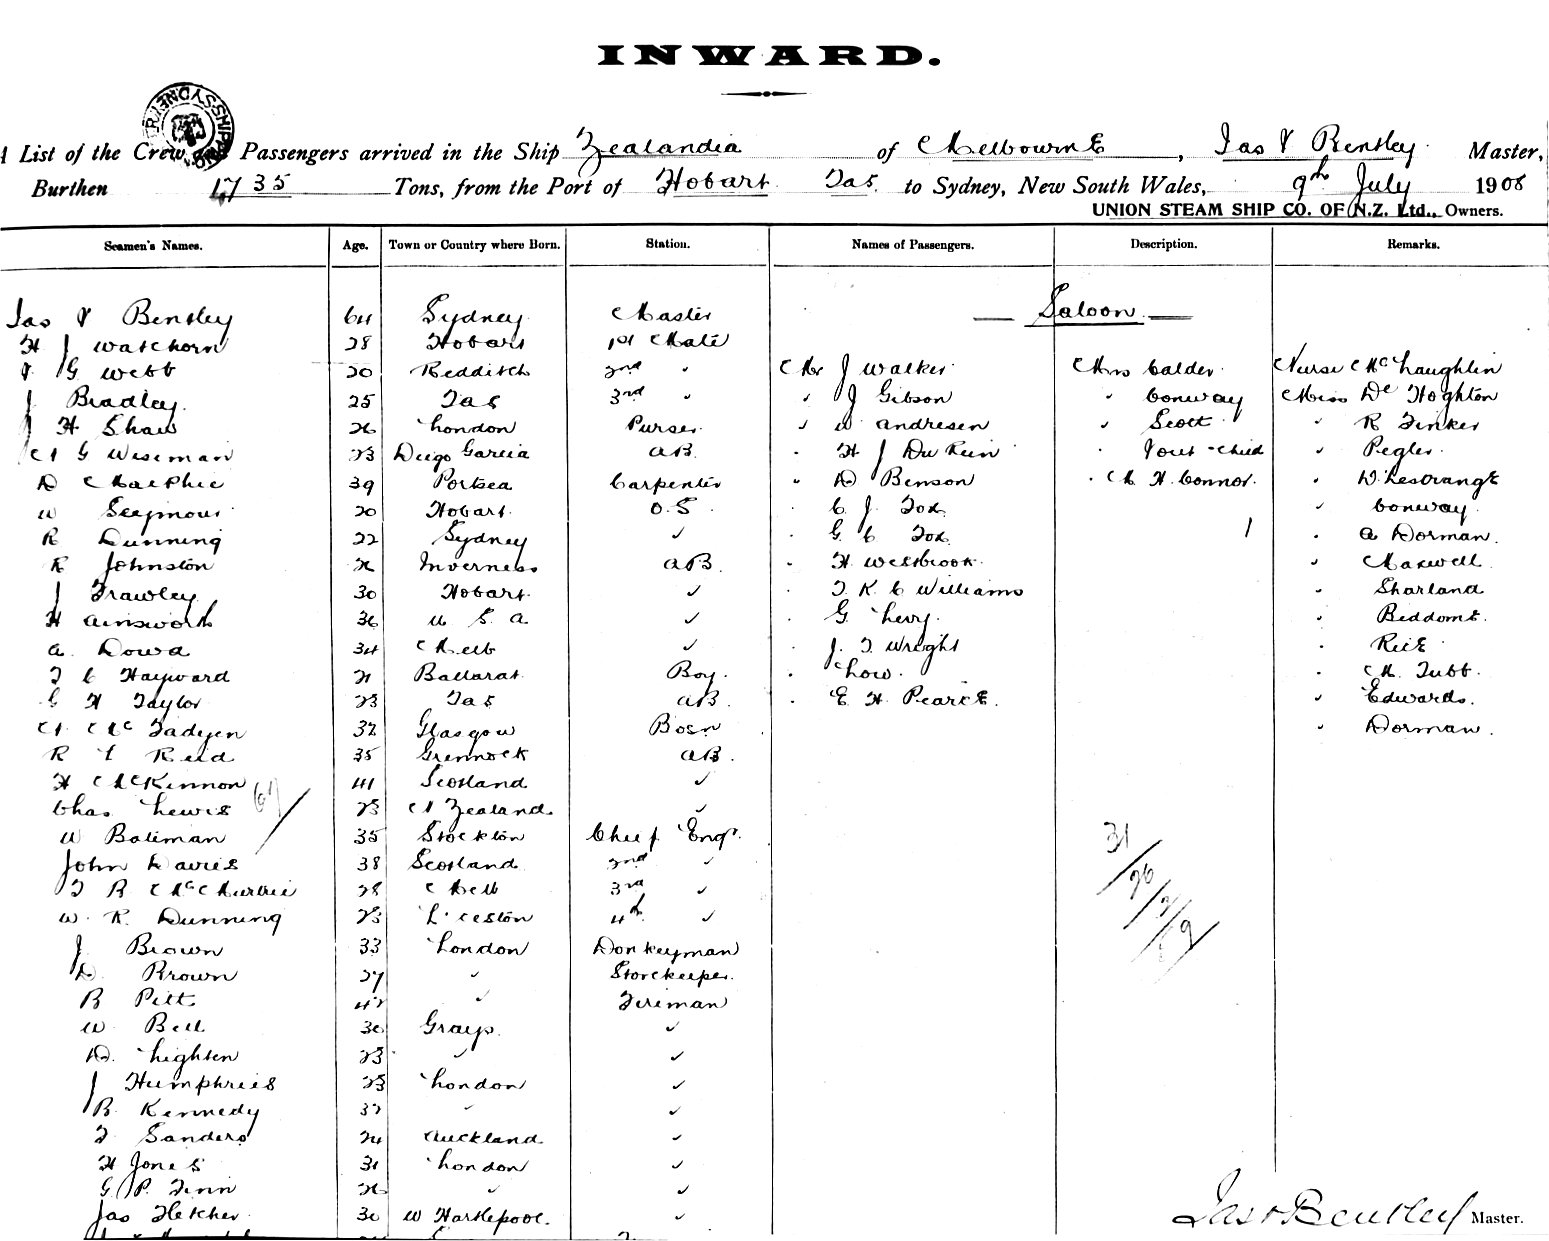 INWARD.
SYDNEY SHIPPING
List of the Crew Passengers arrived in the Ship Zealandia of Melbourne, Jas V Bentley Master,
Burthen 1735 Tons, from the Port of Hobart Tas to Sydney, New South Wales, 9th July 1908
UNION STEAM SHIP CO. OF N.Z. Ltd., Owners.
Seamen's Names. Age. Town or Country where Born. Station. Names of Passengers. Description. Remarks.
Jas V Bentley 64 Sydney Master Saloon
H J Watchorn 28 Hobart 1st Mate
V G Webb 20 Redditch 2nd " Mr J Walker Mrs Calder Nurse McLaughlin
J Bradley 25 Tas 3rd " " J Gibson " Conway Miss De Hoghton
J H Shaw 26 London Purser " W Andresen " Scott " R Tinker
N G Wiseman 23 Diego Garcia AB " H J Du Rein " Yout - child " Pegler
D MacPhie 39 Portsea Carpenter " D Benson " M H Connor " D'Lestrange
W Seymour 20 Hobart O.S. " C J Fox " Conway
R Dunning 22 Sydney " " G C Fox 1 " A Dorman
R Johnston 26 Inverness AB " H Westbrook " Maxwell
J Frawley 30 Hobart " " T K C Williams " Sharland
H Ainsworth 36 U S A " " G Levy " Beddome
A Dowd 34 Melb " " J T Wright " Rice
T C Hayward 21 Ballarat Boy " Low " M Tubb
G H Taylor 23 Tas AB " E H Pearce " Edwards
N McFadyen 32 Glasgow Bosn " Dorman
R Reid 35 Greenock AB
H McKinnon 41 Scotland "
Chas Lewis 23 N Zealand "
W Bateman 35 Stockton Chief Engr
John Davies 38 Scotland 2nd "
T R McMurtrie 28 Melb 3rd "
W R Dunning 23 L'ceston 4th "
J Brown 33 London Donkeyman
D Brown 27 " Storekeeper
B Pitt 42 " Fireman
W Bell 30 Grays "
D Lighten 23 " "
J Humphries 23 London "
B Kennedy 32 " "
T Sanders 24 Auckland "
H Jones 31 London "
G P Finn 26 " "
Jas Fletcher 30 W Hartlepool "
31/26/2/59
Jas V Bentley Master.